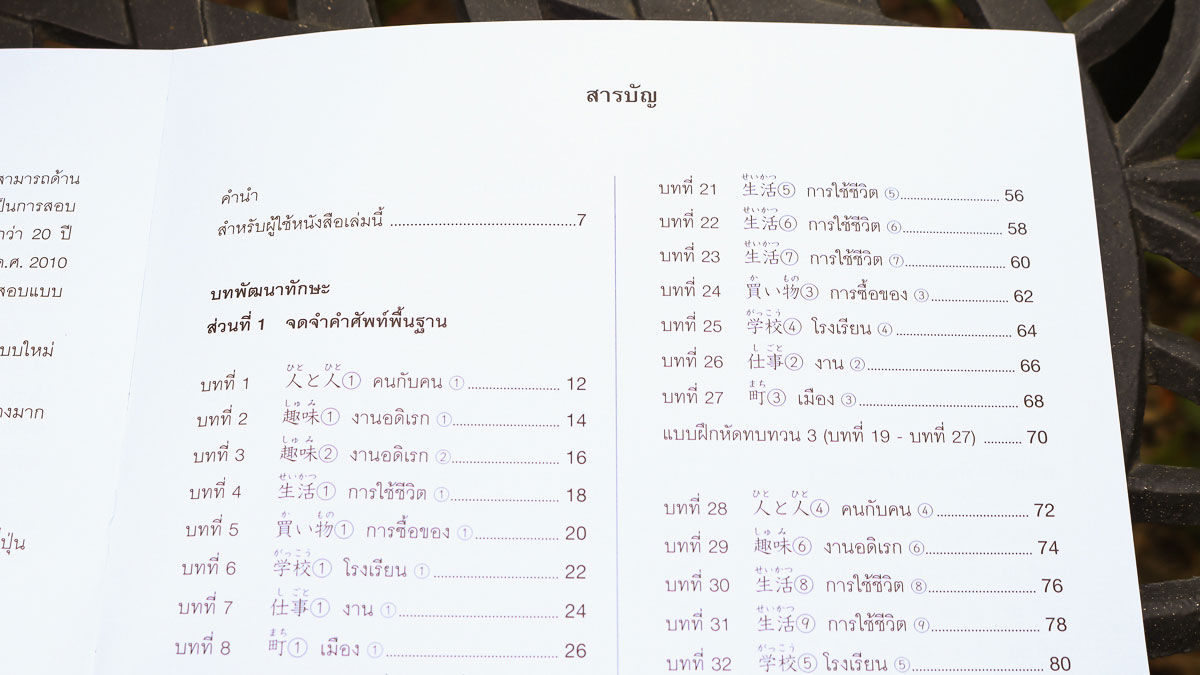 สามารถด้าน
เป็นการสอบ
ว่า 20 ปี
ค.ศ. 2010
สอบแบบ
แบบใหม่
มาก
สารบัญ
คำนำ
สำหรับผู้ใช้หนังสือเล่มนี้ 7
บทพัฒนาทักษะ
ส่วนที่ 1 จดจำคำศัพท์พื้นฐาน
บทที่ 1 人と人① คนกับคน ① 12
บทที่ 2 趣味① งานอดิเรก ① 14
บทที่ 3 趣味② งานอดิเรก ② 16
บทที่ 4 生活① การใช้ชีวิต ① 18
บทที่ 5 買い物① การซื้อของ ① 20
บทที่ 6 学校① โรงเรียน ① 22
บทที่ 7 仕事① งาน ① 24
บทที่ 8 町① เมือง ① 26
บทที่ 21 生活⑤ การใช้ชีวิต ⑤ 56
บทที่ 22 生活⑥ การใช้ชีวิต ⑥ 58
บทที่ 23 生活⑦ การใช้ชีวิต ⑦ 60
บทที่ 24 買い物③ การซื้อของ ③ 62
บทที่ 25 学校④ โรงเรียน ④ 64
บทที่ 26 仕事② งาน ② 66
บทที่ 27 町③ เมือง ③ 68
แบบฝึกหัดทบทวน 3 (บทที่ 19 - บทที่ 27) 70
บทที่ 28 人と人④ คนกับคน ④ 72
บทที่ 29 趣味⑥ งานอดิเรก ⑥ 74
บทที่ 30 生活⑧ การใช้ชีวิต ⑧ 76
บทที่ 31 生活⑨ การใช้ชีวิต ⑨ 78
บทที่ 32 学校⑤ โรงเรียน ⑤ 80